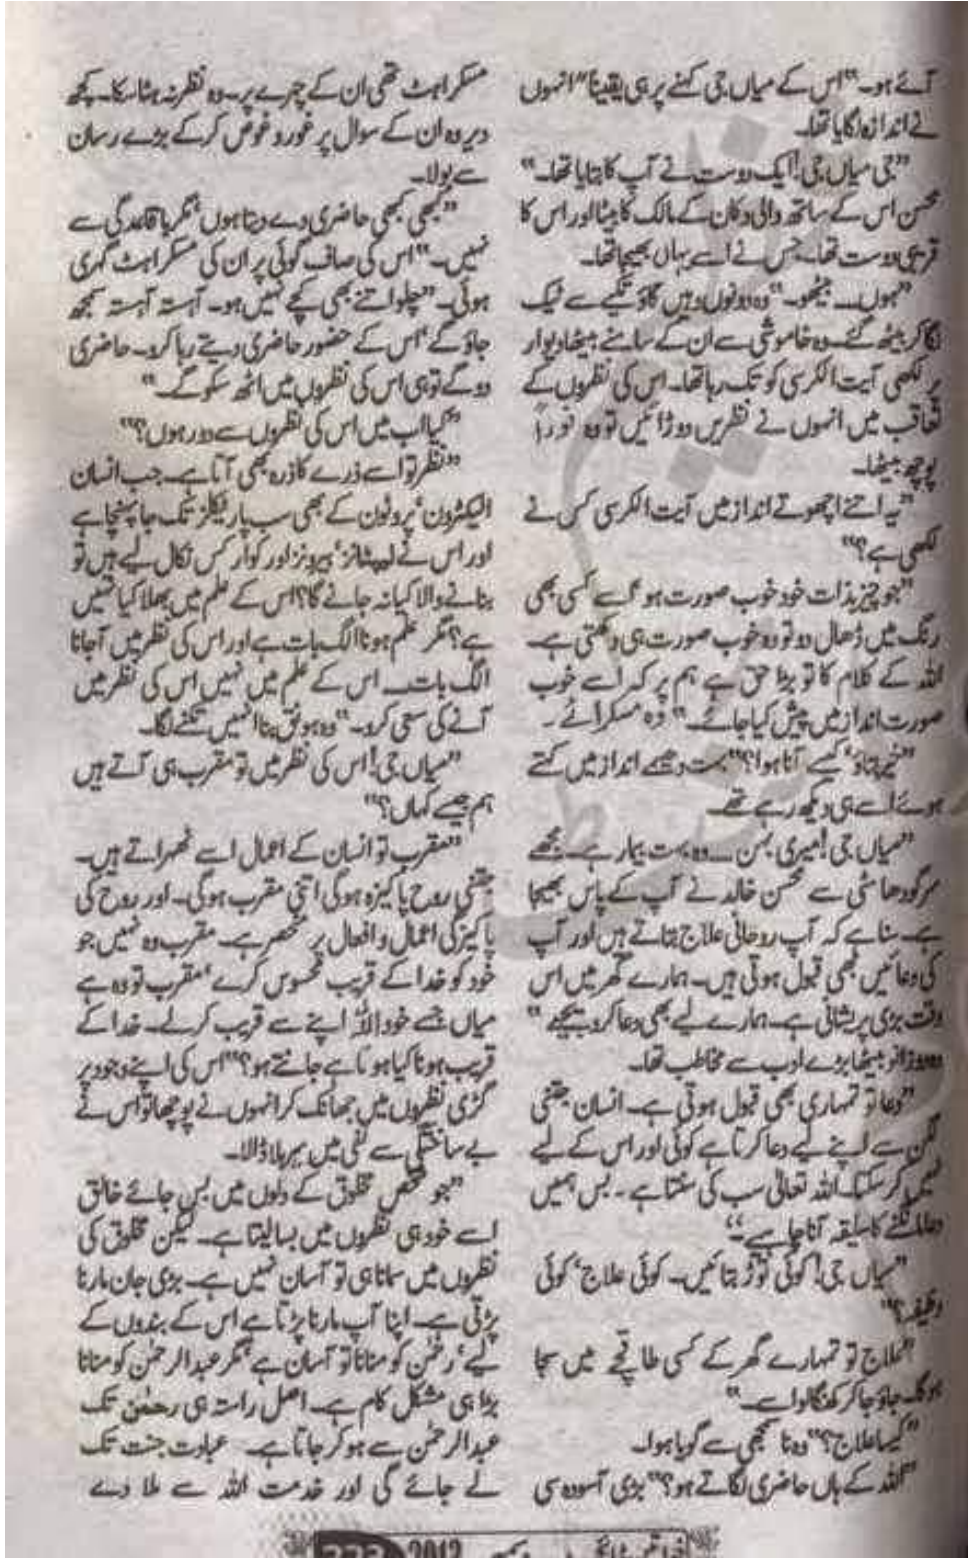 آئے ہو۔“ اس کے میاں جی کہنے پر ہی یقیناً انہوں
نے اندازہ لگایا تھا۔
”جی میاں جی! ایک دوست نے آپ کا بتایا تھا۔“
محسن اس کے ساتھ والی دکان کے مالک کا بیٹا اور اس کا
قریبی دوست تھا۔ جس نے اسے یہاں بھیجا تھا۔
”ہوں۔ بیٹھو۔“ وہ دونوں وہیں گاؤ تکیے سے ٹیک
لگا کر بیٹھ گئے۔ وہ خاموشی سے ان کے سامنے بیٹھا دیوار
پر لکھی آیت الکرسی کو تک رہا تھا۔ اس کی نظروں کے
تعاقب میں انہوں نے نظریں دوڑائیں تو وہ فوراً
پوچھ بیٹھا۔
”یہ اتنے اچھوتے انداز میں آیت الکرسی کس نے
لکھی ہے؟“
”جو چیز بذات خود خوب صورت ہو اسے کسی بھی
رنگ میں ڈھال دو تو وہ خوب صورت ہی دکھتی ہے۔
اللہ کے کلام کا تو بڑا حق ہے ہم پر کہ اسے خوب
صورت انداز میں پیش کیا جائے۔“ وہ مسکرائے۔
”خیر بتاؤ‘ کیسے آنا ہوا؟“ بہت دھیمے انداز میں کہتے
ہوئے اسے ہی دیکھ رہے تھے۔
”میاں جی! میری بہن۔ وہ بہت بیمار ہے۔ مجھے
سرگودھا سٹی سے محسن خالد نے آپ کے پاس بھیجا
ہے۔ سنا ہے کہ آپ روحانی علاج بتاتے ہیں اور آپ
کی دعائیں بھی قبول ہوتی ہیں۔ ہمارے گھر میں اس
وقت بڑی پریشانی ہے۔ ہمارے لیے بھی دعا کر دیجیے“
وہ دوزانو بیٹھا بڑے ادب سے مخاطب تھا۔
”دعا تو تمہاری بھی قبول ہوتی ہے۔ انسان جتنی
لگن سے اپنے لیے دعا کرتا ہے کوئی اور اس کے لیے
نہیں کر سکتا۔ اللہ تعالیٰ سب کی سنتا ہے۔ بس ہمیں
دعا مانگنے کا سلیقہ آنا چاہیے۔“
”میاں جی! کوئی توڑ بتائیں۔ کوئی علاج‘ کوئی
وظیفہ؟“
”علاج تو تمہارے گھر کے کسی طاقچے میں سجا
ہوگا۔ جاؤ جا کر کھنگالو اسے۔“
”کیسا علاج؟“ وہ نا سمجھی سے گویا ہوا۔
”اللہ کے ہاں حاضری لگاتے ہو؟“ بڑی آسودہ سی
مسکراہٹ تھی ان کے چہرے پر۔ وہ نظر نہ ہٹا سکا۔ کچھ
دیر وہ ان کے سوال پر غور و غوض کر کے بڑے رسان
سے بولا۔
”کبھی کبھی حاضری دے دیتا ہوں‘ مگر باقاعدگی سے
نہیں۔“ اس کی صاف گوئی پر ان کی مسکراہٹ گہری
ہوئی۔ ”چلو اتنے بھی کچے نہیں ہو۔ آہستہ آہستہ سمجھ
جاؤ گے‘ اس کے حضور حاضری دیتے رہا کرو۔ حاضری
دو گے تو ہی اس کی نظروں میں اٹھ سکو گے۔“
”کیا اب میں اس کی نظروں سے دور ہوں؟“
”نظر تو اسے ذرے کا ذرہ بھی آتا ہے۔ جب انسان
الیکٹرون‘ پروٹون کے بھی سب پارٹیکلز تک جا پہنچا ہے
اور اس نے لیپٹانز‘ بیرونز اور کوارکس نکال لیے ہیں تو
بنانے والا کیا نہ جانے گا؟ اس کے علم میں بھلا کیا نہیں
ہے؟ مگر علم ہونا الگ بات ہے اور اس کی نظر میں آجانا
الگ بات۔ اس کے علم میں نہیں اس کی نظر میں
آنے کی سعی کرو۔“ وہ ہونق بنا انہیں تکنے لگا۔
”میاں جی! اس کی نظر میں تو مقرب ہی آتے ہیں
ہم جیسے کہاں؟“
”مقرب تو انسان کے اعمال اسے ٹھہراتے ہیں۔
جتنی روح پاکیزہ ہوگی اتنی مقرب ہوگی۔ اور روح کی
پاکیزگی اعمال و افعال پر منحصر ہے۔ مقرب وہ نہیں جو
خود کو خدا کے قریب محسوس کرے‘ مقرب تو وہ ہے
میاں جسے خود اللہ اپنے سے قریب کرلے۔ خدا کے
قریب ہونا کیا ہوتا ہے جانتے ہو؟“ اس کی اپنے وجود پر
گڑی نظروں میں جھانک کر انہوں نے پوچھا تو اس نے
بے ساختگی سے نفی میں سر ہلا ڈالا۔
”جو شخص مخلوق کے دلوں میں بس جائے خالق
اسے خود ہی نظروں میں بسا لیتا ہے۔ لیکن مخلوق کی
نظروں میں سمانا ہی تو آسان نہیں ہے۔ بڑی جان مارنا
پڑتی ہے۔ اپنا آپ مارنا پڑتا ہے اس کے بندوں کے
لیے‘ رحمٰن کو منانا تو آسان ہے‘ مگر عبدالرحمٰن کو منانا
بڑا ہی مشکل کام ہے۔ اصل راستہ ہی رحمٰن تک
عبدالرحمٰن سے ہو کر جاتا ہے۔ عبادت جنت تک
لے جائے گی اور خدمت اللہ سے ملا دے
2012